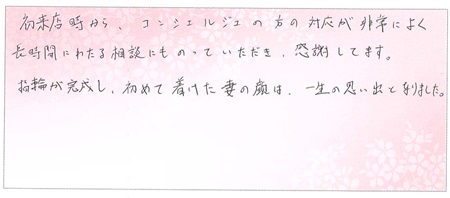 初来店時から、コンシェルジュの方の対応が非常によく
長時間にわたる相談にものっていただき、感謝してます。
指輪が完成し、初めて着けた妻の顔は、一生の思い出となりました。